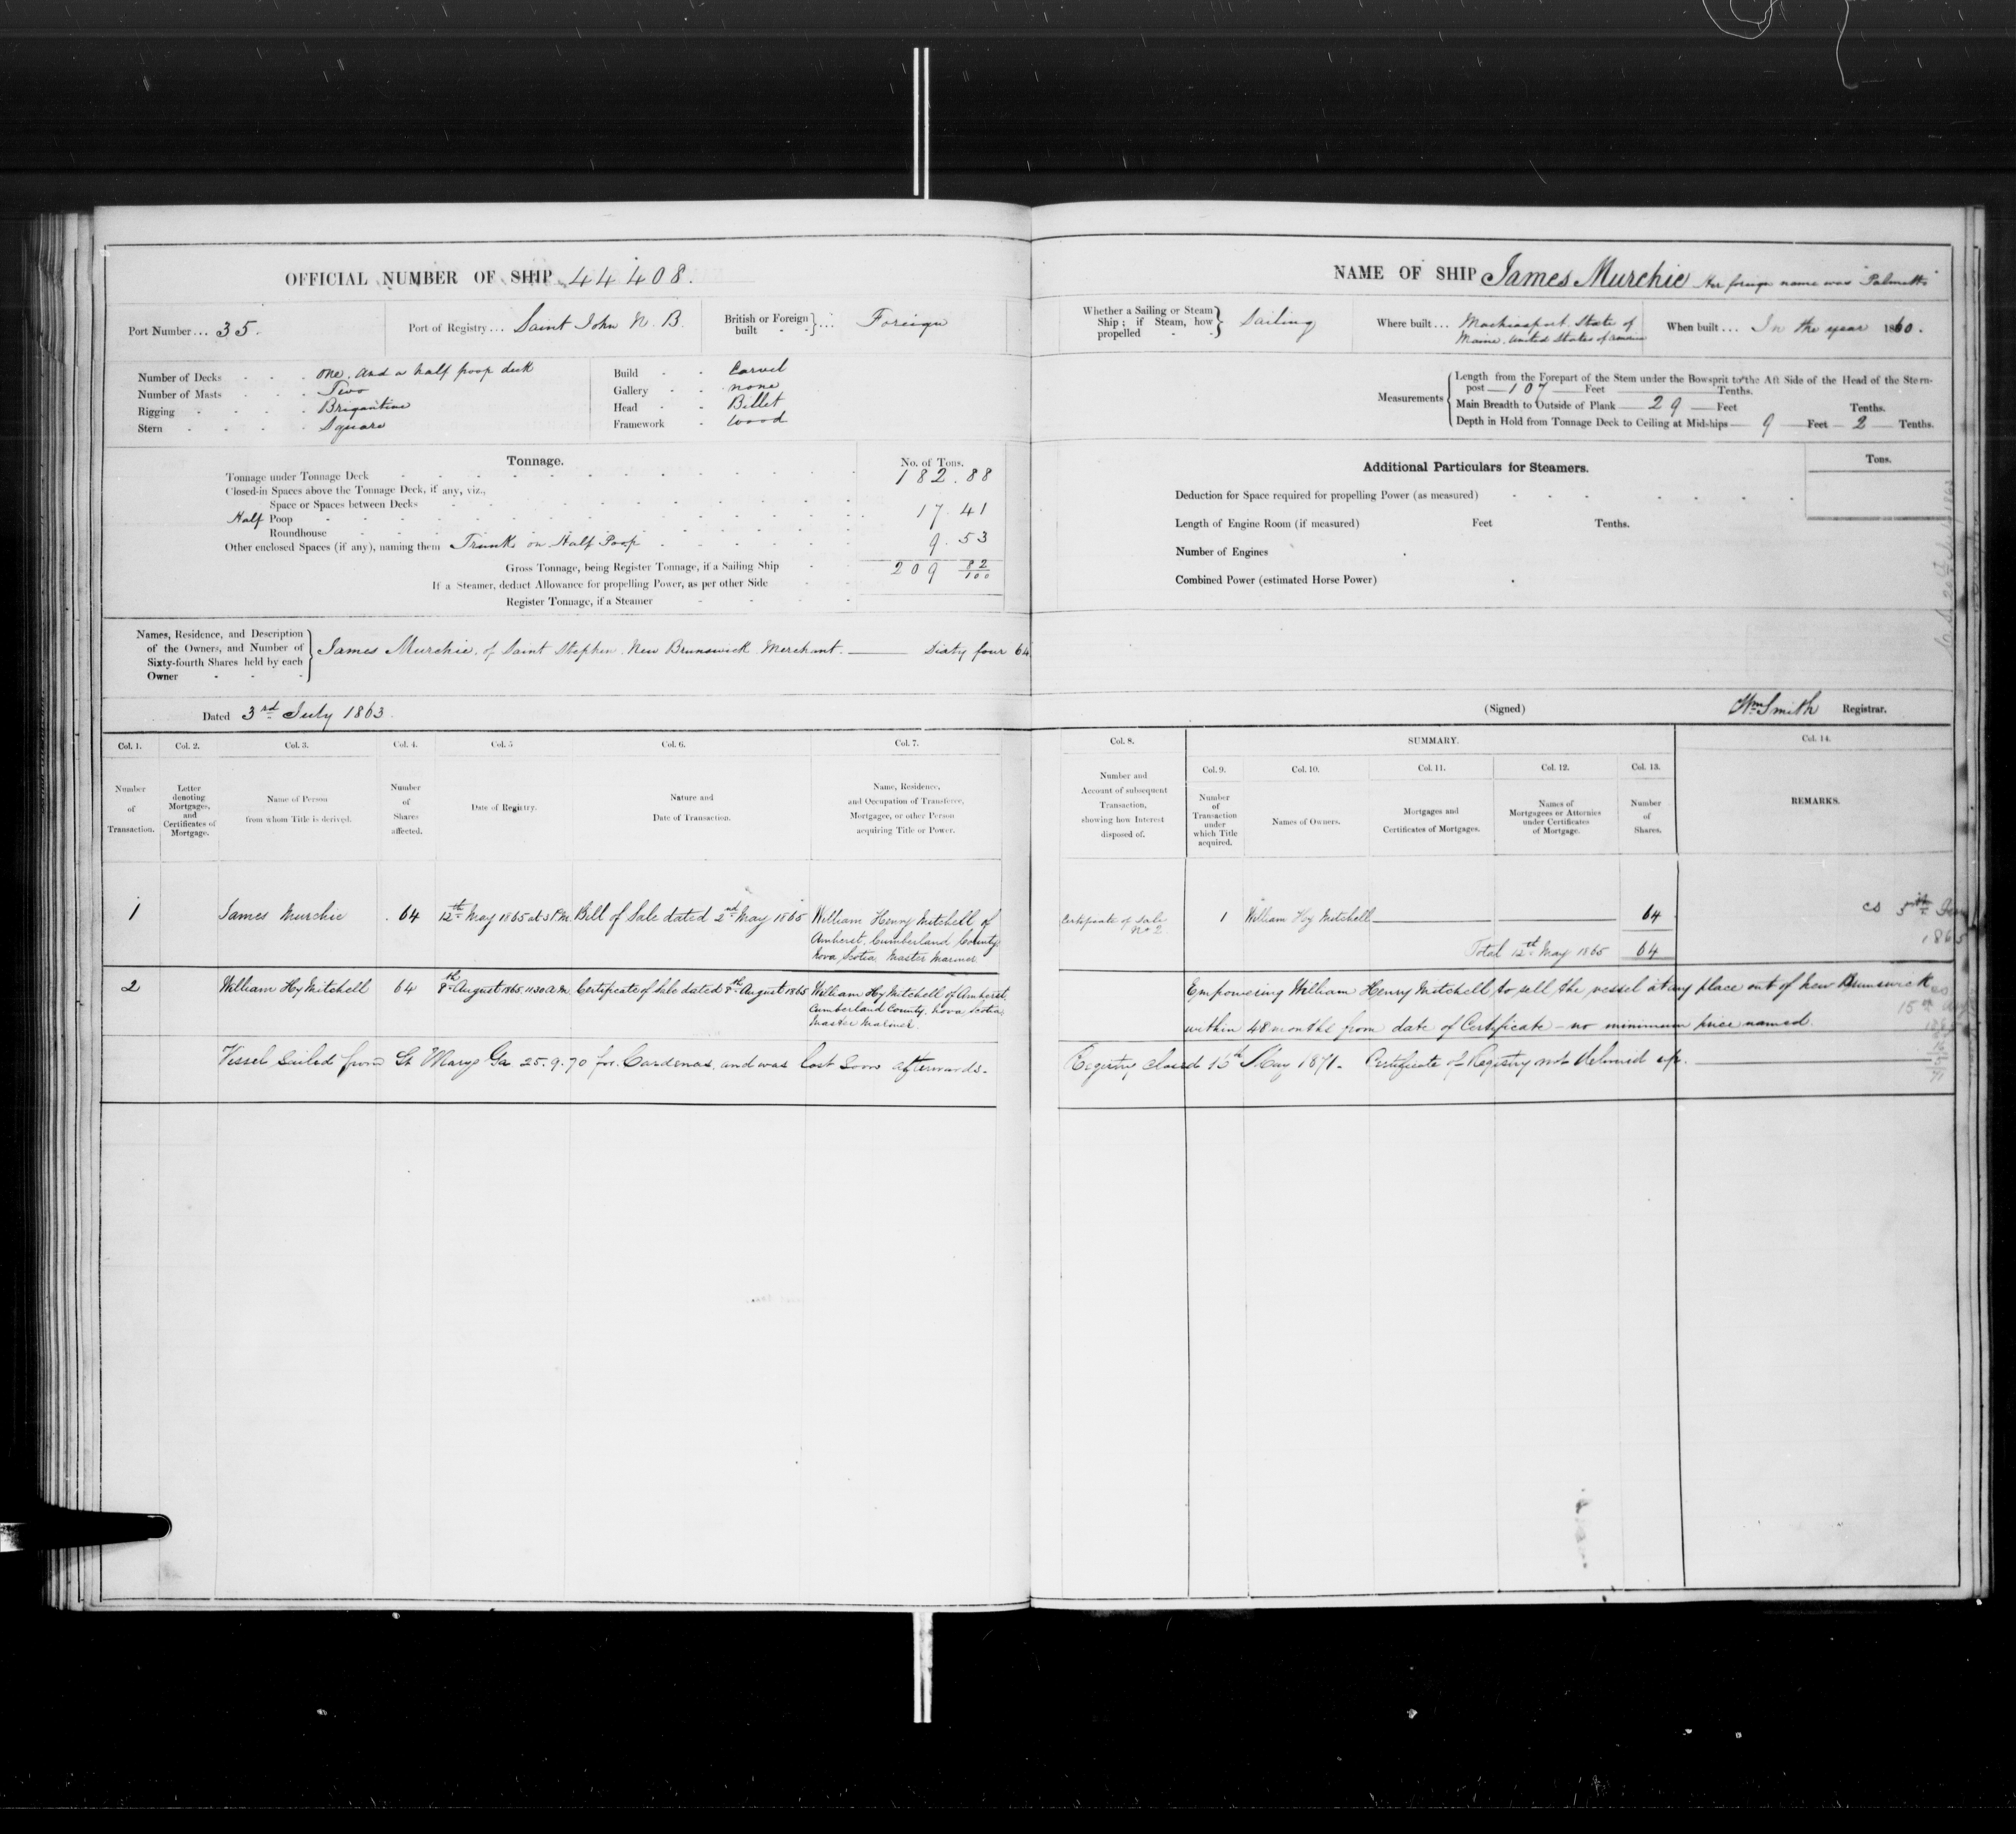 OFFICIAL NUMBER OF SHIP 44408.
Port Number ... 35.
Port of Registry ... Saint John N. B.
British or Foreign built } ... Foreign
Number of Decks - - - one. and a half poop deck
Number of Masts - - - Two
Rigging - - - - Brigantine
Stern - - - - Square
Build - - Carvel
Gallery - - none
Head - - Billet
Framework - wood
Tonnage.
No. of Tons.
Tonnage under Tonnage Deck 182.88
Closed-in Spaces above the Tonnage Deck, if any, viz.,
Space or Spaces between Decks
Half Poop 17.41
Roundhouse
Other enclosed Spaces (if any), naming them Trunk on Half Poop 9.53
Gross Tonnage, being Register Tonnage, if a Sailing Ship 209 82/100
If a Steamer, deduct Allowance for propelling Power, as per other Side
Register Tonnage, if a Steamer
Names, Residence, and Description
of the Owners, and Number of
Sixty-fourth Shares held by each
Owner
James Murchie, of Saint Stephen. New Brunswick. Merchant. —— Sixty four 64
Dated 3rd July 1863.
Col. 1.
Number
of
Transaction.
Col. 2.
Letter
denoting
Mortgages,
and
Certificates of
Mortgage.
Col. 3.
Name of Person
from whom Title is derived.
Col. 4.
Number
of
Shares
affected.
Col. 5
Date of Registry.
Col. 6.
Nature and
Date of Transaction.
Col. 7.
Name, Residence,
and Occupation of Transferee,
Mortgagee, or other Person
acquiring Title or Power.
1
James Murchie
64
12th May 1865 at 3 P.M.
Bill of Sale dated 2nd May 1865
William Henry Mitchell of
Amherst, Cumberland County
Nova Scotia Master Mariner
2
William Hy Mitchell
64
8th August 1865. 11.30 A.M.
Certificate of Sale dated 8th August 1865
William Hy Mitchell of Amherst,
Cumberland County, Nova Scotia
Master Mariner.
Vessel sailed from St Marys Ga 25.9.70 for Cardenas, and was lost soon afterwards.
NAME OF SHIP James Murchie Her foreign name was "Palmetto"
Whether a Sailing or Steam
Ship; if Steam, how
propelled
Sailing
Where built ... Machiasport. State of
Maine. United States of America
When built ... In the year 1860.
Measurements
Length from the Forepart of the Stem under the Bowsprit to the Aft Side of the Head of the Stern-
post — 107 — Feet Tenths.
Main Breadth to Outside of Plank — 29 — Feet Tenths.
Depth in Hold from Tonnage Deck to Ceiling at Midships — 9 — Feet — 2 — Tenths.
Additional Particulars for Steamers.
Tons.
Deduction for Space required for propelling Power (as measured)
Length of Engine Room (if measured) Feet Tenths.
Number of Engines
Combined Power (estimated Horse Power)
(Signed) Wm Smith Registrar.
Col. 8.
Number and
Account of subsequent
Transaction,
showing how Interest
disposed of.
SUMMARY.
Col. 9.
Number
of
Transaction
under
which Title
acquired.
Col. 10.
Names of Owners.
Col. 11.
Mortgages and
Certificates of Mortgages.
Col. 12.
Names of
Mortgagees or Attornies
under Certificates
of Mortgage.
Col. 13.
Number
of
Shares.
Col. 14.
REMARKS.
Certificate of Sale
No 2
1
William Hy Mitchell
64
Total 12th May 1865 64
cs 5th
1865
Empowering William Henry Mitchell, to sell, the vessel at any place out of New Brunswick
within 48 months from date of Certificate - no minimum price named.
Registry closed 16th May 1871. Certificate of Registry not delivered up.